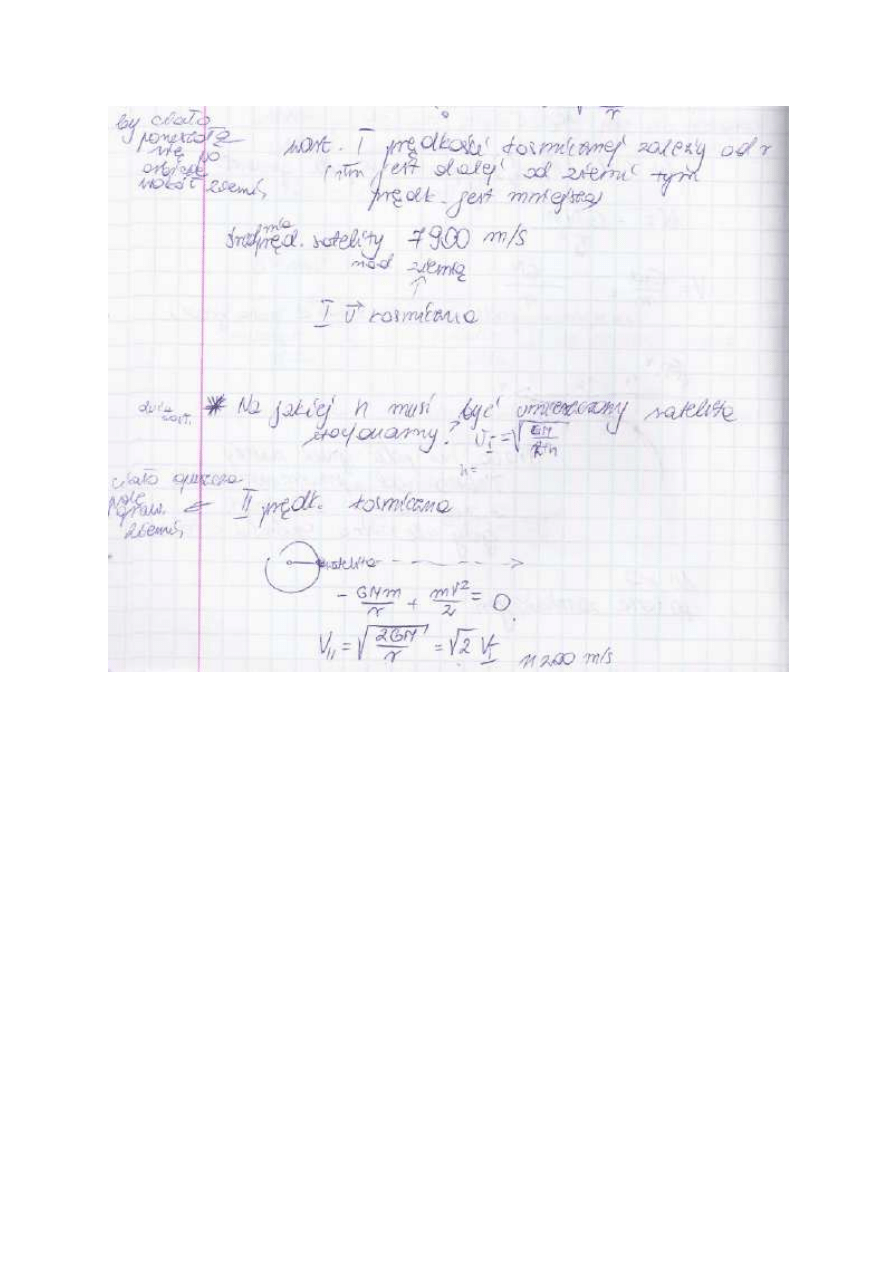 by ciało
poruszało
się po
orbicie
wokół ziemi,
wart. I prędkości kosmicznej zależy od r
im jest dalej od ziemi tym
prędk. jest mniejsza
pręd. satelity 7900 m/s
nad ziemią
↑
I v⃗ kosmiczna
* Na jakiej h musi być umieszczony satelita
stacjonarny? v_I = √(GM/(R+h))
h=
ciało opuszcza
pole
graw.
ziemi,
← II prędk. kosmiczna
satelita
- GMm/r + mv²/2 = 0
V_II = √(2GM/r) = √2 V_I 11200 m/s